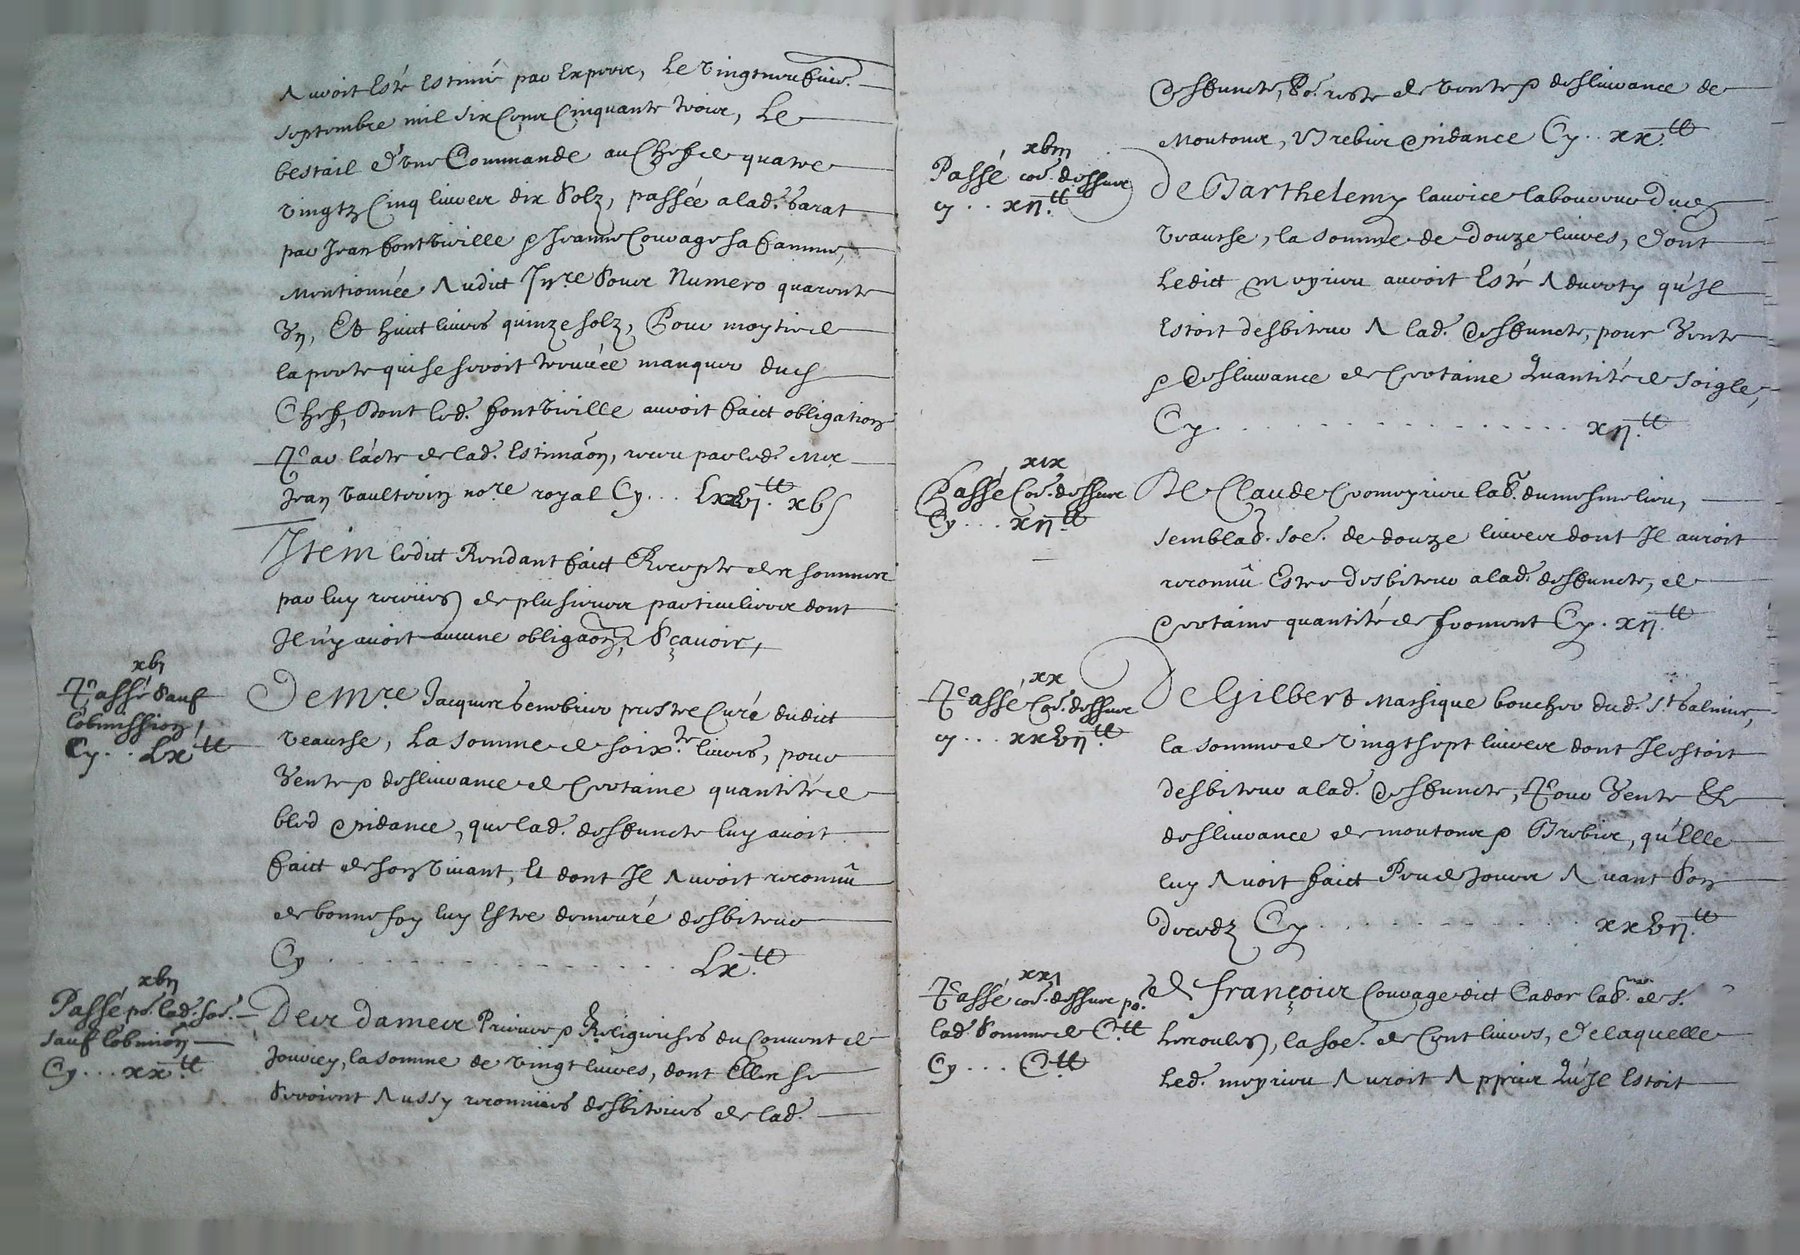 Auvoit Esté Estimé par Expertz, Le vingtneufuie.
septembre mil six Cens Cinquante trois, Le
bestail d'une Commande au Chef de quatre
vingtz Cinq liures dix solz, passée a lad. Sarat
par Jean fontvieille & Jeanne Couvage sa famme,
Mentionnée Audict Jnre soubz Numero quarente
Un, Et huict liures quinze solz, Pour moytié de
la perte qui se seroit trouuée manquer dud
Chef, Dont led. fontvieille auvoit faict obligation
Par l'acte de lad. Estimaōn, receu par led. Me
Jean Vaultrin nore royal Cy... xbs
Item ledict Rendant faict Recepte des sommes
par luy receües de plusieurs particuliers dont
Il n'y auoit aucune obligaōn, Sçauoir,
xbj
Passé sauf
lobmission
Cy... Lx tt
De Mre Jacques prestre Curé dudict
veausse, La somme de soixte liures, pour
Vente & desliurance de Certaine quantité de
bled, que lad. deffuncte luy auoit
faict de son viuant, Et dont Il Auvoit reconnû
de bonne foy luy Estre demeuré desbiteur
Cy . . . . . Lx tt
xbij
Passé pr. lad. soe.
sauf lobmion
Cy... xx tt
Des dames Prieure & Religieuses du Couvent de
Jouzey, la somme de vingt liures, dont Elles se
seroient Aussy reconnües desbitrices de lad.
Deffuncte, Po. reste de vente & desliurance de
Moutons, Brebis Cy.. xx tt
xbiij
Passé coe. dessus
cy... xij tt
De Barthelemy laurice laboureur dud
veausse, la somme de douze liures, dont
Ledict meyrieu auvoit Esté Aduerty qu'Il
Estoit desbiteur A lad. deffuncte, pour Vente
& desliurance de Certaine Quantité de soigle,
Cy . . . . . xij tt
xix
Passé Coe. dessus
Cy... xij tt
De Claude Cromeyrieu lab. du mesme lieu,
semblab. soe. de douze liures dont Il auroit
reconnû Estre desbiteur a lad. deffuncte, de
Certaine quantité de froment Cy. xij tt
xx
Passé Coe. dessus
cy... xxvij tt
De Gilbert Massique boucher dud. St Salmin,
la somme de vingt sept liures dont Il estoit
desbiteur a lad. deffuncte, Pour Vente Et
desliurance de moutons & Brebis, qu'Elle
luy Auoit faict Peu de Jours Auant son
decedz Cy . . . . . xxvij tt
xxj
Passé coe. dessus po.
lad. somme de C tt
Cy... C tt
De françois Couvage dict Cador lab. de St
hercules, la soe. de Cent liures, de laquelle
Led. meyrieu Auroit Appris Qu'Il Estoit